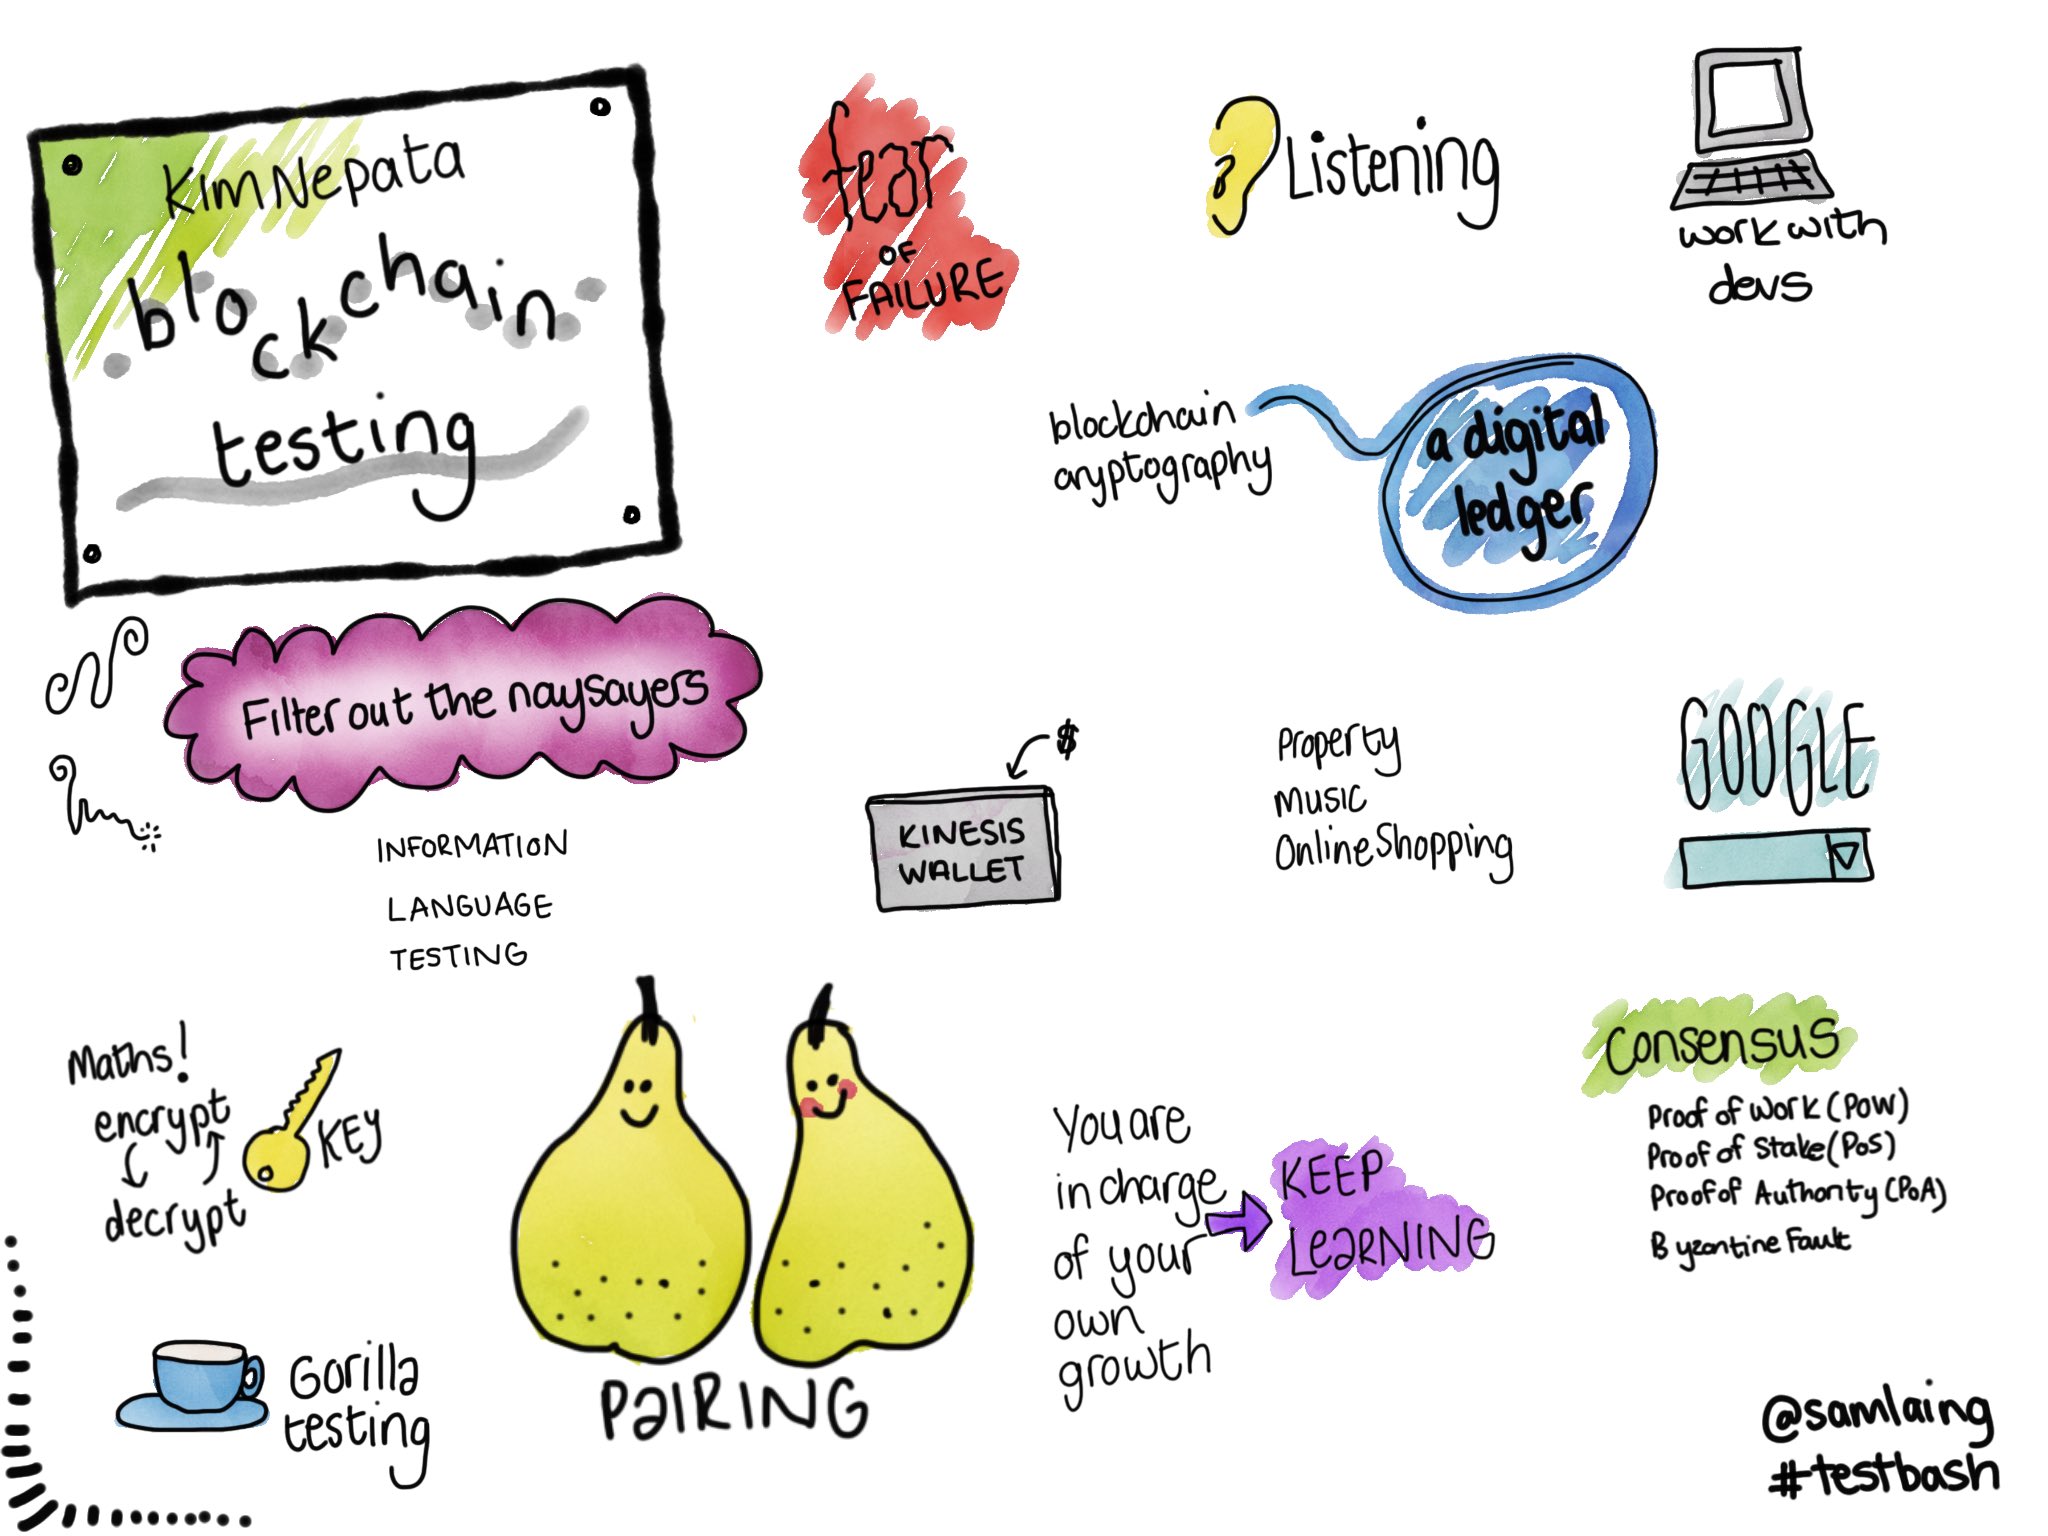 KIM Nepata
blockchain
testing
fear
OF
FAILURE
Listening
work with
devs
blockchain
cryptography
a digital
ledger
Filter out the naysayers
INFORMATION
LANGUAGE
TESTING
$
KINESIS
WALLET
Property
Music
Online Shopping
GOOGLE
Maths!
encrypt
decrypt
KEY
Gorilla
testing
PAIRING
You are
in charge
of your
own
growth
KEEP
LEARNING
Consensus
Proof of Work (PoW)
Proof of Stake (PoS)
Proof of Authority (PoA)
Byzantine Fault
@samlaing
#testbash